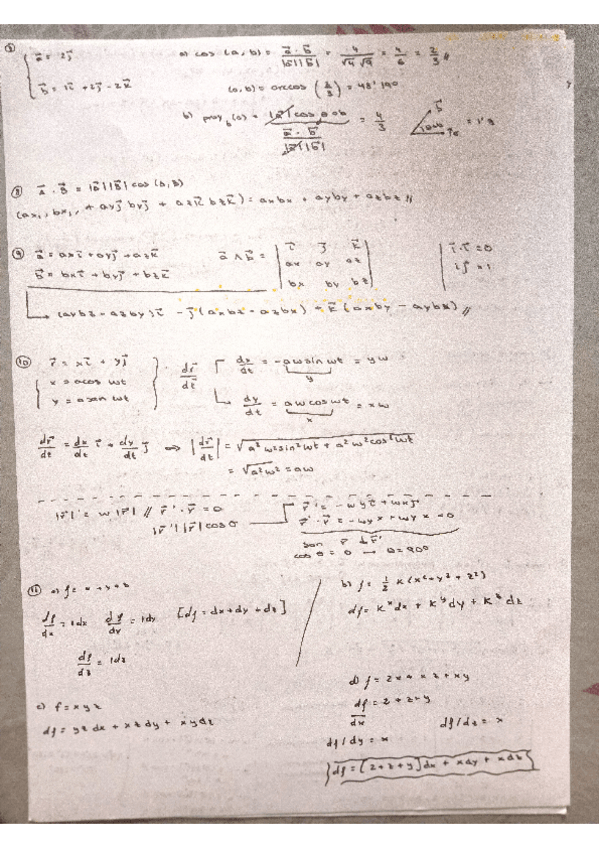 a⃗ = 2j⃗
b⃗ = 1i⃗ + 2j⃗ - 2k⃗
a) cos (a,b) = a⃗ · b⃗ / |a⃗||b⃗| = 4 / √4 √9 = 4/6 = 2/3 //
(a,b) = arccos (2/3) = 48'190
b) proy_b(a) = = 4/3
a⃗ · b⃗ / |a⃗||b⃗|
⑧ a⃗ · b⃗ = |a⃗||b⃗| cos (a,b)
+ ayj⃗ byj⃗ + azk⃗ bzk⃗) = axbx + ayby + azbz //
⑨ a⃗ = axi⃗ + ayj⃗ + azk⃗
b⃗ = bxi⃗ + byj⃗ + bzk⃗
a⃗ ∧ b⃗ = | i⃗ j⃗ k⃗ |
| ax ay az |
| bx by bz |
i⃗·i⃗ = 0
ij⃗ = 1
(aybz - azby)i⃗ - j⃗(axbz - azbx) + k⃗(axby - aybx) //
⑩ r⃗ = xi⃗ + yj⃗
x = acos wt
y = asen wt
dr⃗/dt
dx/dt = -aw sin wt = yw
y
dy/dt = aw cos wt = xw
x
dr⃗/dt = dx/dt i⃗ + dy/dt j⃗ ⇒ |dr⃗/dt| = √a²w²sin²wt + a²w²cos²wt
= √a²w² = aw
|r⃗|' = w|r⃗| // r⃗' · r⃗ = 0
|r⃗'||r⃗|cosθ
r⃗' = -wyi⃗ + wxj⃗
r⃗' · r⃗ = -wyx + wyx = 0
son r⃗ ⊥ r⃗'
cos θ = 0 → θ = 90º
⑪ a) f = x + y + z
df/dx = 1dx df/dy = 1dy [df = dx + dy + dz]
df/dz = 1dz
b) f = 1/2 k(x² + y² + z²)
df = kxdx + kydy + kzdz
c) f = xyz
df = yzdx + xzdy + xydz
df/dx = 2 + z + y
df/dz = x
df/dy = x
df = [2+z+y]dx + xdy + xdz